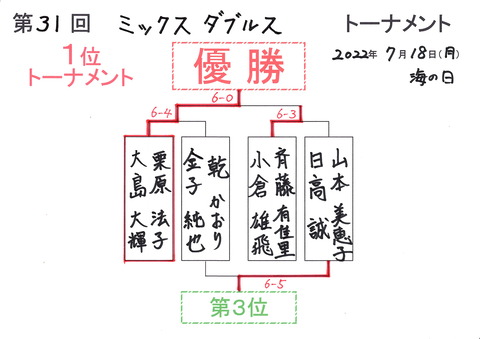 第31回 ミックスダブルス トーナメント
1位
トーナメント
優勝
2022年 7月18日(月)
海の日
6-0
6-4
6-3
栗原 法子
大島 大輝
乾 かおり
金子 純也
斉藤 有佳里
小倉 雄飛
山本 美恵子
日高 誠
6-5
第3位